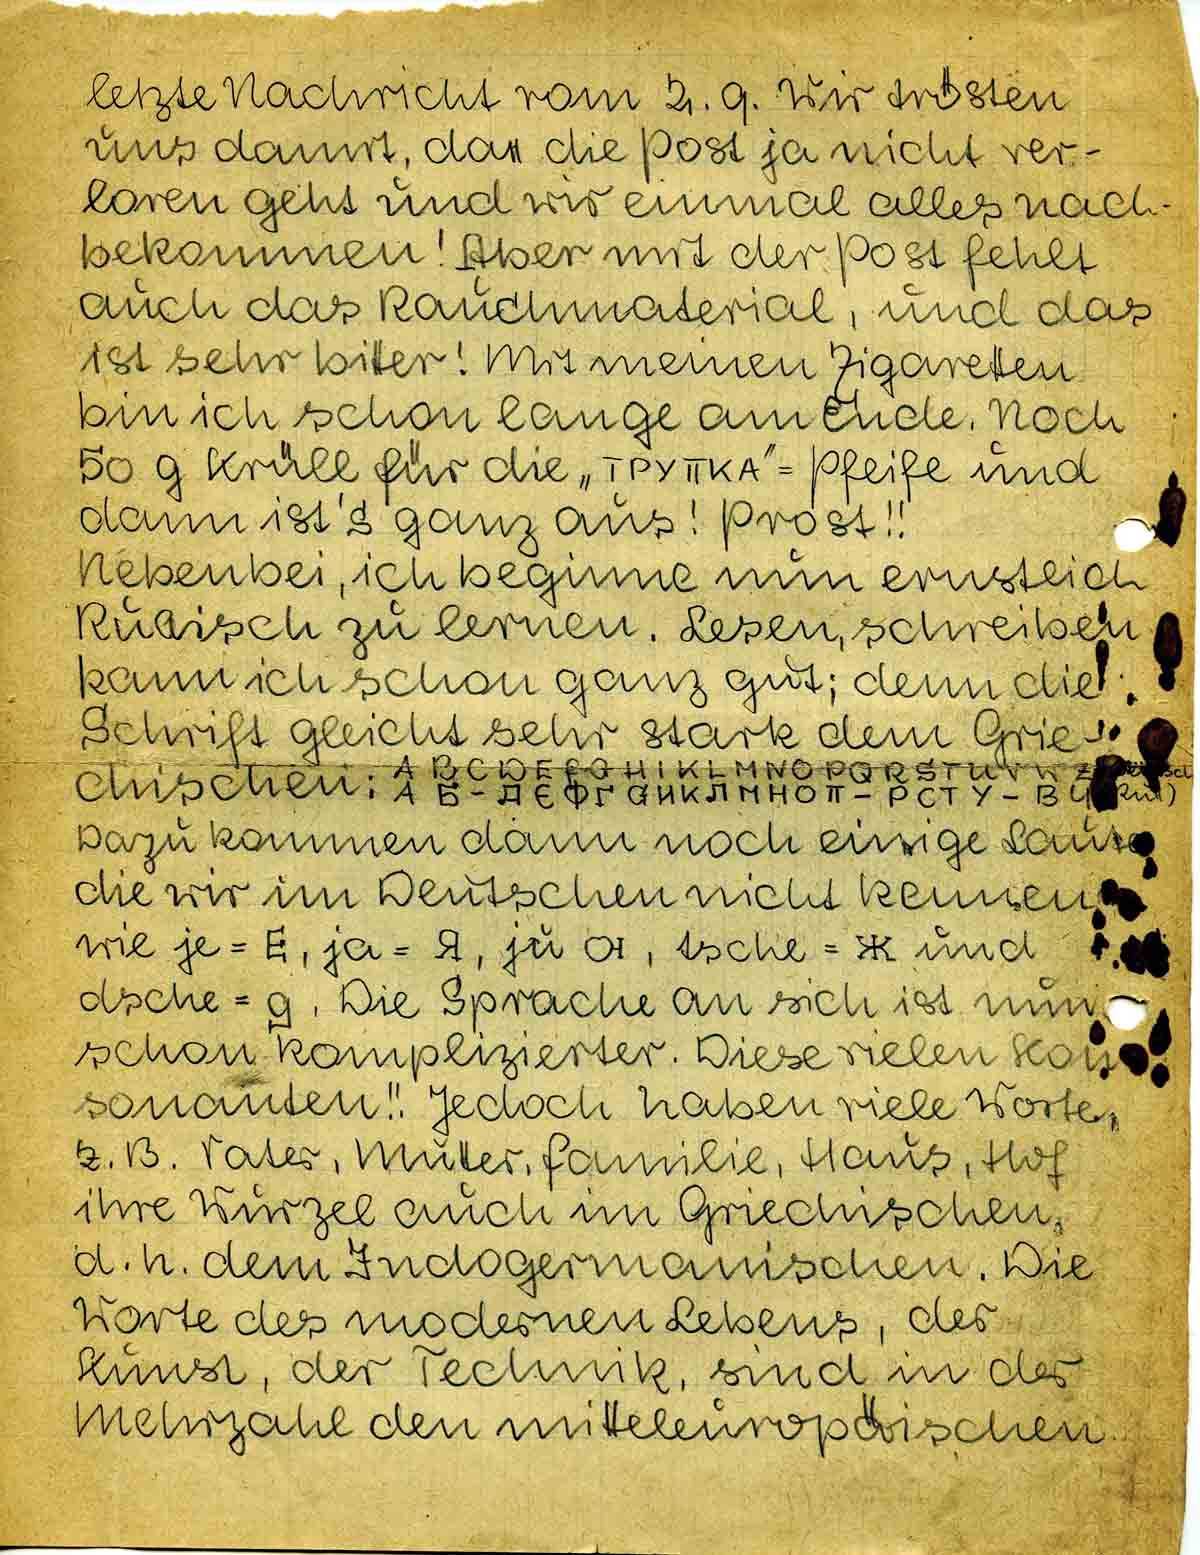 letzte Nachricht vom 2. 9. Wir trösten
uns damit, daß die Post ja nicht ver-
loren geht und wir einmal alles nach-
bekommen! Aber mit der Post fehlt
auch das Rauchmaterial, und das
ist sehr bitter! Mit meinen Zigaretten
bin ich schon lange am Ende. Noch
50 g Krüll für die „ТРУПКА" = Pfeife und
dann ist's ganz aus! Prost!!
Nebenbei, ich beginne nun ernstlich
Rußisch zu lernen. Lesen, schreiben
kann ich schon ganz gut; denn die
Schrift gleicht sehr stark dem Grie-
chischen: A B C D E F G H I K L M N O P Q R S T U V W Z
А Б - Д Е Ф Г G И К Л М Н О П - Р С Т У - В Ц
Dazu kommen dann noch einige Laute
die wir im Deutschen nicht kennen,
wie je = E, ja = Я, ju Ю, tsche = Ж und
dsche = g. Die Sprache an sich ist nun
schon komplizierter. Diese vielen Kon
sonanten!! Jedoch haben viele Worte,
z. B. Vater, Mutter, Familie, Haus, Hof
ihre Wurzel auch im Griechischen,
d. h. dem Indogermanischen. Die
Worte des modernen Lebens, der
Kunst, der Technik, sind in der
Mehrzahl den mitteleuropäischen